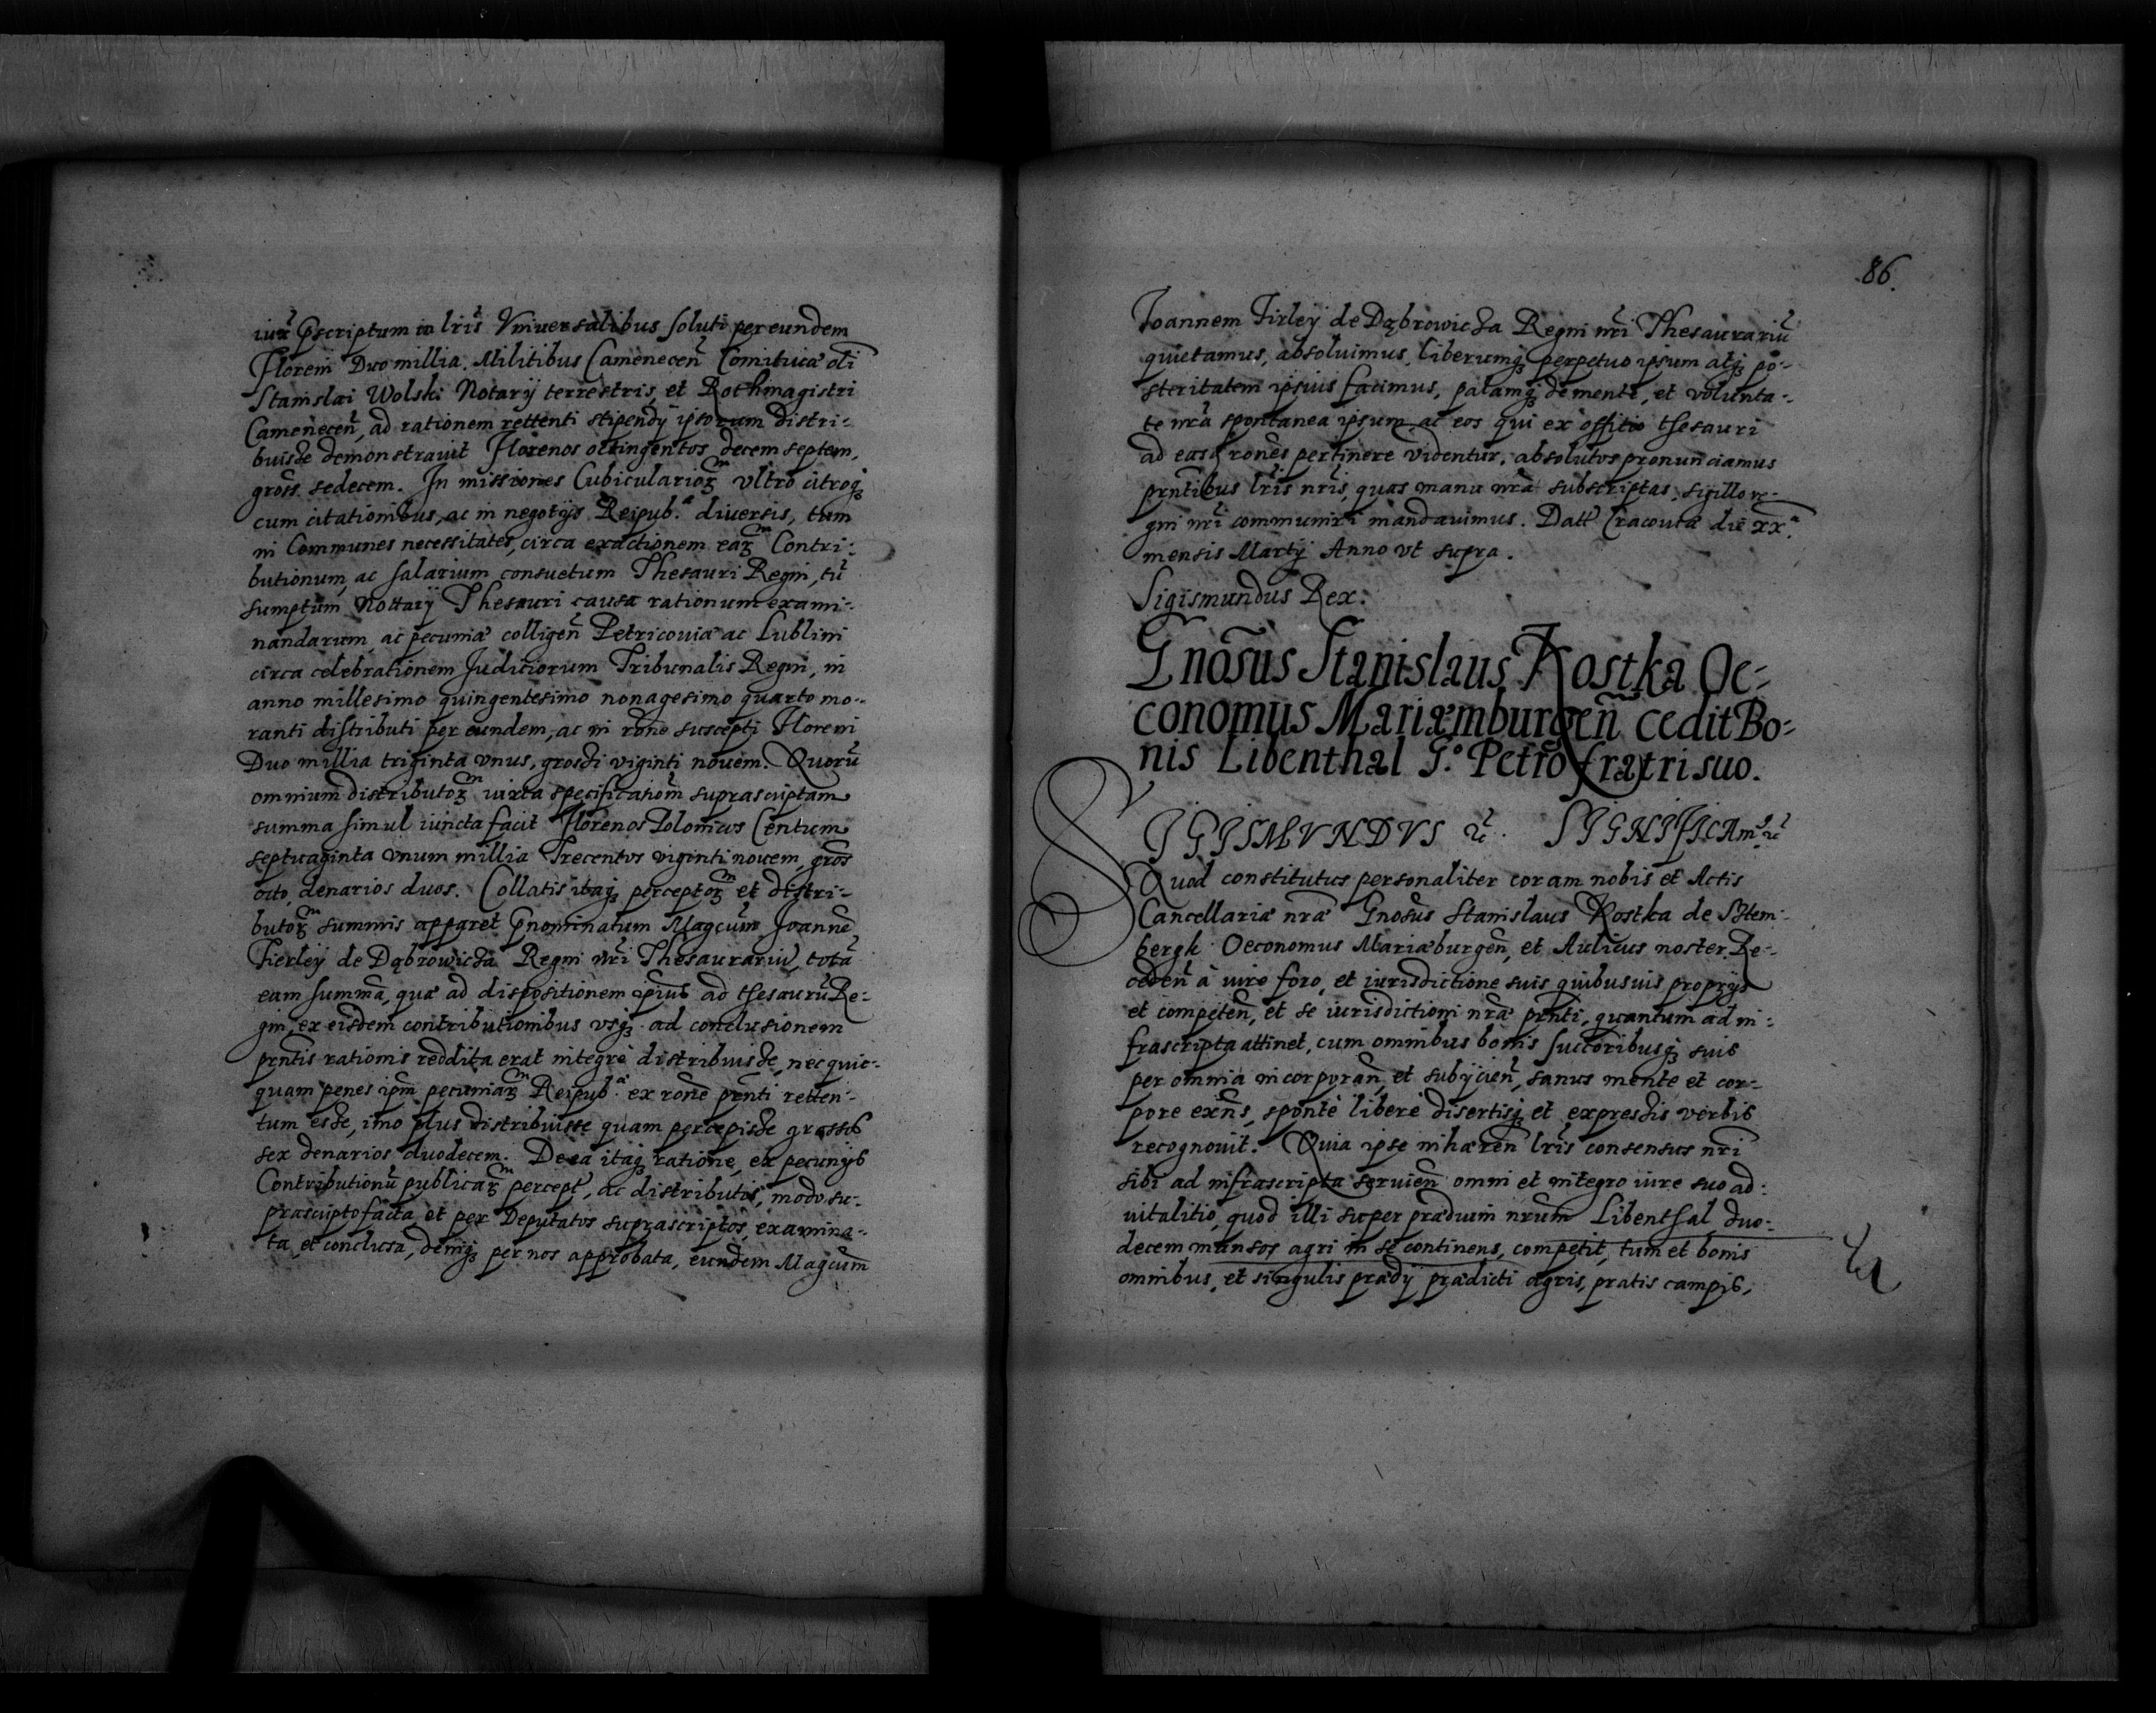 iux̃ p̃scriptum in lrĩs Vniuersalibus soluti per eundem
Floreni Duo millia. Militibus Camenecen̄ Comitiuæ oli
Stanislai Wolski Notarij terrestris, et Rothmagistri
Camenecen̄, ad rationem rettenti stipendij ipsorum distri-
buisse demonstrauit Florenos octingentos decem septem,
gross. sedecem. In missiones Cubicularioꝝ vltro citroqꝫ
cum citationibus, ac in negotijs Reipub.ᵃ diuersis, tum
in Communes necessitates, circa exactionem eaꝝ Contri-
butionum, ac salarium consuetum Thesauri Regni, tũ
sumptum Nottarij Thesauri causa rationum exami-
nandarum, ac pecuniæ colligen̄ Petricouiæ ac Lublini
circa celebrationem Judiciorum Tribunalis Regni, in
anno millesimo quingentesimo nonagesimo quarto mo-
ranti distributi per eundem, ac in rõne suscepti Floreni
Duo millia triginta vnus, grossi viginti nouem. Quorũ
omnium distributoꝝ iuxta specificationẽ suprascriptam
summa simul iuncta facit Florenos Polonicos Centum
septuaginta vnum millia Trecentos viginti nouem, gros
octo, denarios duos. Collatis itaqꝫ perceptoꝝ et distri-
butoꝝ summis apparet p̃nominatum Magcum̃ Joannẽ
Fierlej de Dąbrowicza Regni nr̃i Thesaurariũ, totã
eam summã, quæ ad dispositionem ipius̃ ad thesaurũ Re-
gni, ex eisdem contributionibus vsqꝫ ad conclusionem
prn̄tis rationis reddita erat integrè distribuisse, nec quic-
quam penes ipm̃ pecuniaꝝ Reipub.ᵃ ex rone prn̄ti retten-
tum esse, imo plus distribuisse quam percepisse grossos
sex denarios duodecem. De ea itaqꝫ ratione, ex pecunijs
Contributionũ publicaꝝ percept̃, ac distributis, modo su-
prascripto facta et per Deputatos suprascriptos, examina-
ta, et conclusa, deniqꝫ per nos approbata, eundem Magcum̃
86.
Joannem Firley de Dąbrowicza Regni nr̃i Thesaurariũ
quietamus, absoluimus, liberumqꝫ perpetuo ipsum atqꝫ po-
steritatem ipsius facimus, palamqꝫ de mente, et volunta-
te nrã spontanea ipsum ac eos qui ex offitio thesauri
ad eas rones pertinere videntur, absolutos pronunciamus
prn̄tibus lrĩs nrĩs, quas manu nrã subscriptas, sigillo re-
gni nr̃i communiri mandauimus. Datt̃ Cracouiæ die xx.ᵃ
mensis Martij Anno vt supra.
Sigismundus Rex.
Gnõsus Stanislaus Kostka Oe-
conomus Mariæmburgen̄ cedit Bo-
nis Libenthal G.º Petro fratri suo.
SIGISMVNDVS &c. SIGNIFICAm⁹ &c
Quod constitutus personaliter coram nobis et Actis
Cancellariæ nrã Gnosus̃ Stanislaus Kostka de Sztem-
bergk Oeconomus Mariæburgen̄, et Aulicus noster. Re-
ceden̄ à iure foro, et iurisdictione suis quibusuis proprijs
et competen̄, et se iurisdictioni nræ prn̄ti, quantum ad in-
frascripta attinet, cum omnibus bonis succoribusqꝫ suis
per omnia incorporan̄, et subijcien̄, sanus mente et cor-
pore exn̄s, spontè liberè disertisqꝫ et expressis verbis
recognouit. Quia ipse inhæren̄ lrĩs consensus nr̃i
sibi ad infrascripta seruien̄ omni et integro iure suo ad-
uitalitio, quod illi super prædium nrũm Libenthal duo-
decem mansos agri in se continens, competit, tum et bonis
omnibus, et singulis prædij prædicti agris, pratis campis,